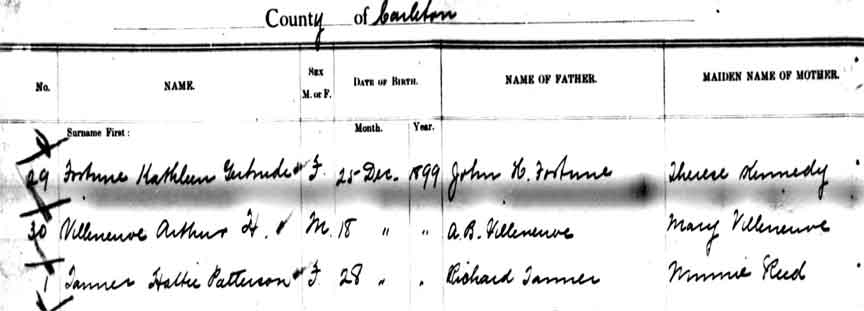 County of Carleton
No. NAME. SEX M. or F. DATE OF BIRTH. NAME OF FATHER. MAIDEN NAME OF MOTHER.
Surname First: Month. Year.
29 Fortune Kathleen Gertrude F. 25 Dec. 1899 John H. Fortune Therese Kennedy
30 Villeneuve Arthur H. M. 18 " " A.B. Villeneuve Mary Villeneuve
1 Tanner Hattie Patterson F 28 " " Richard Tanner Winnie Reed